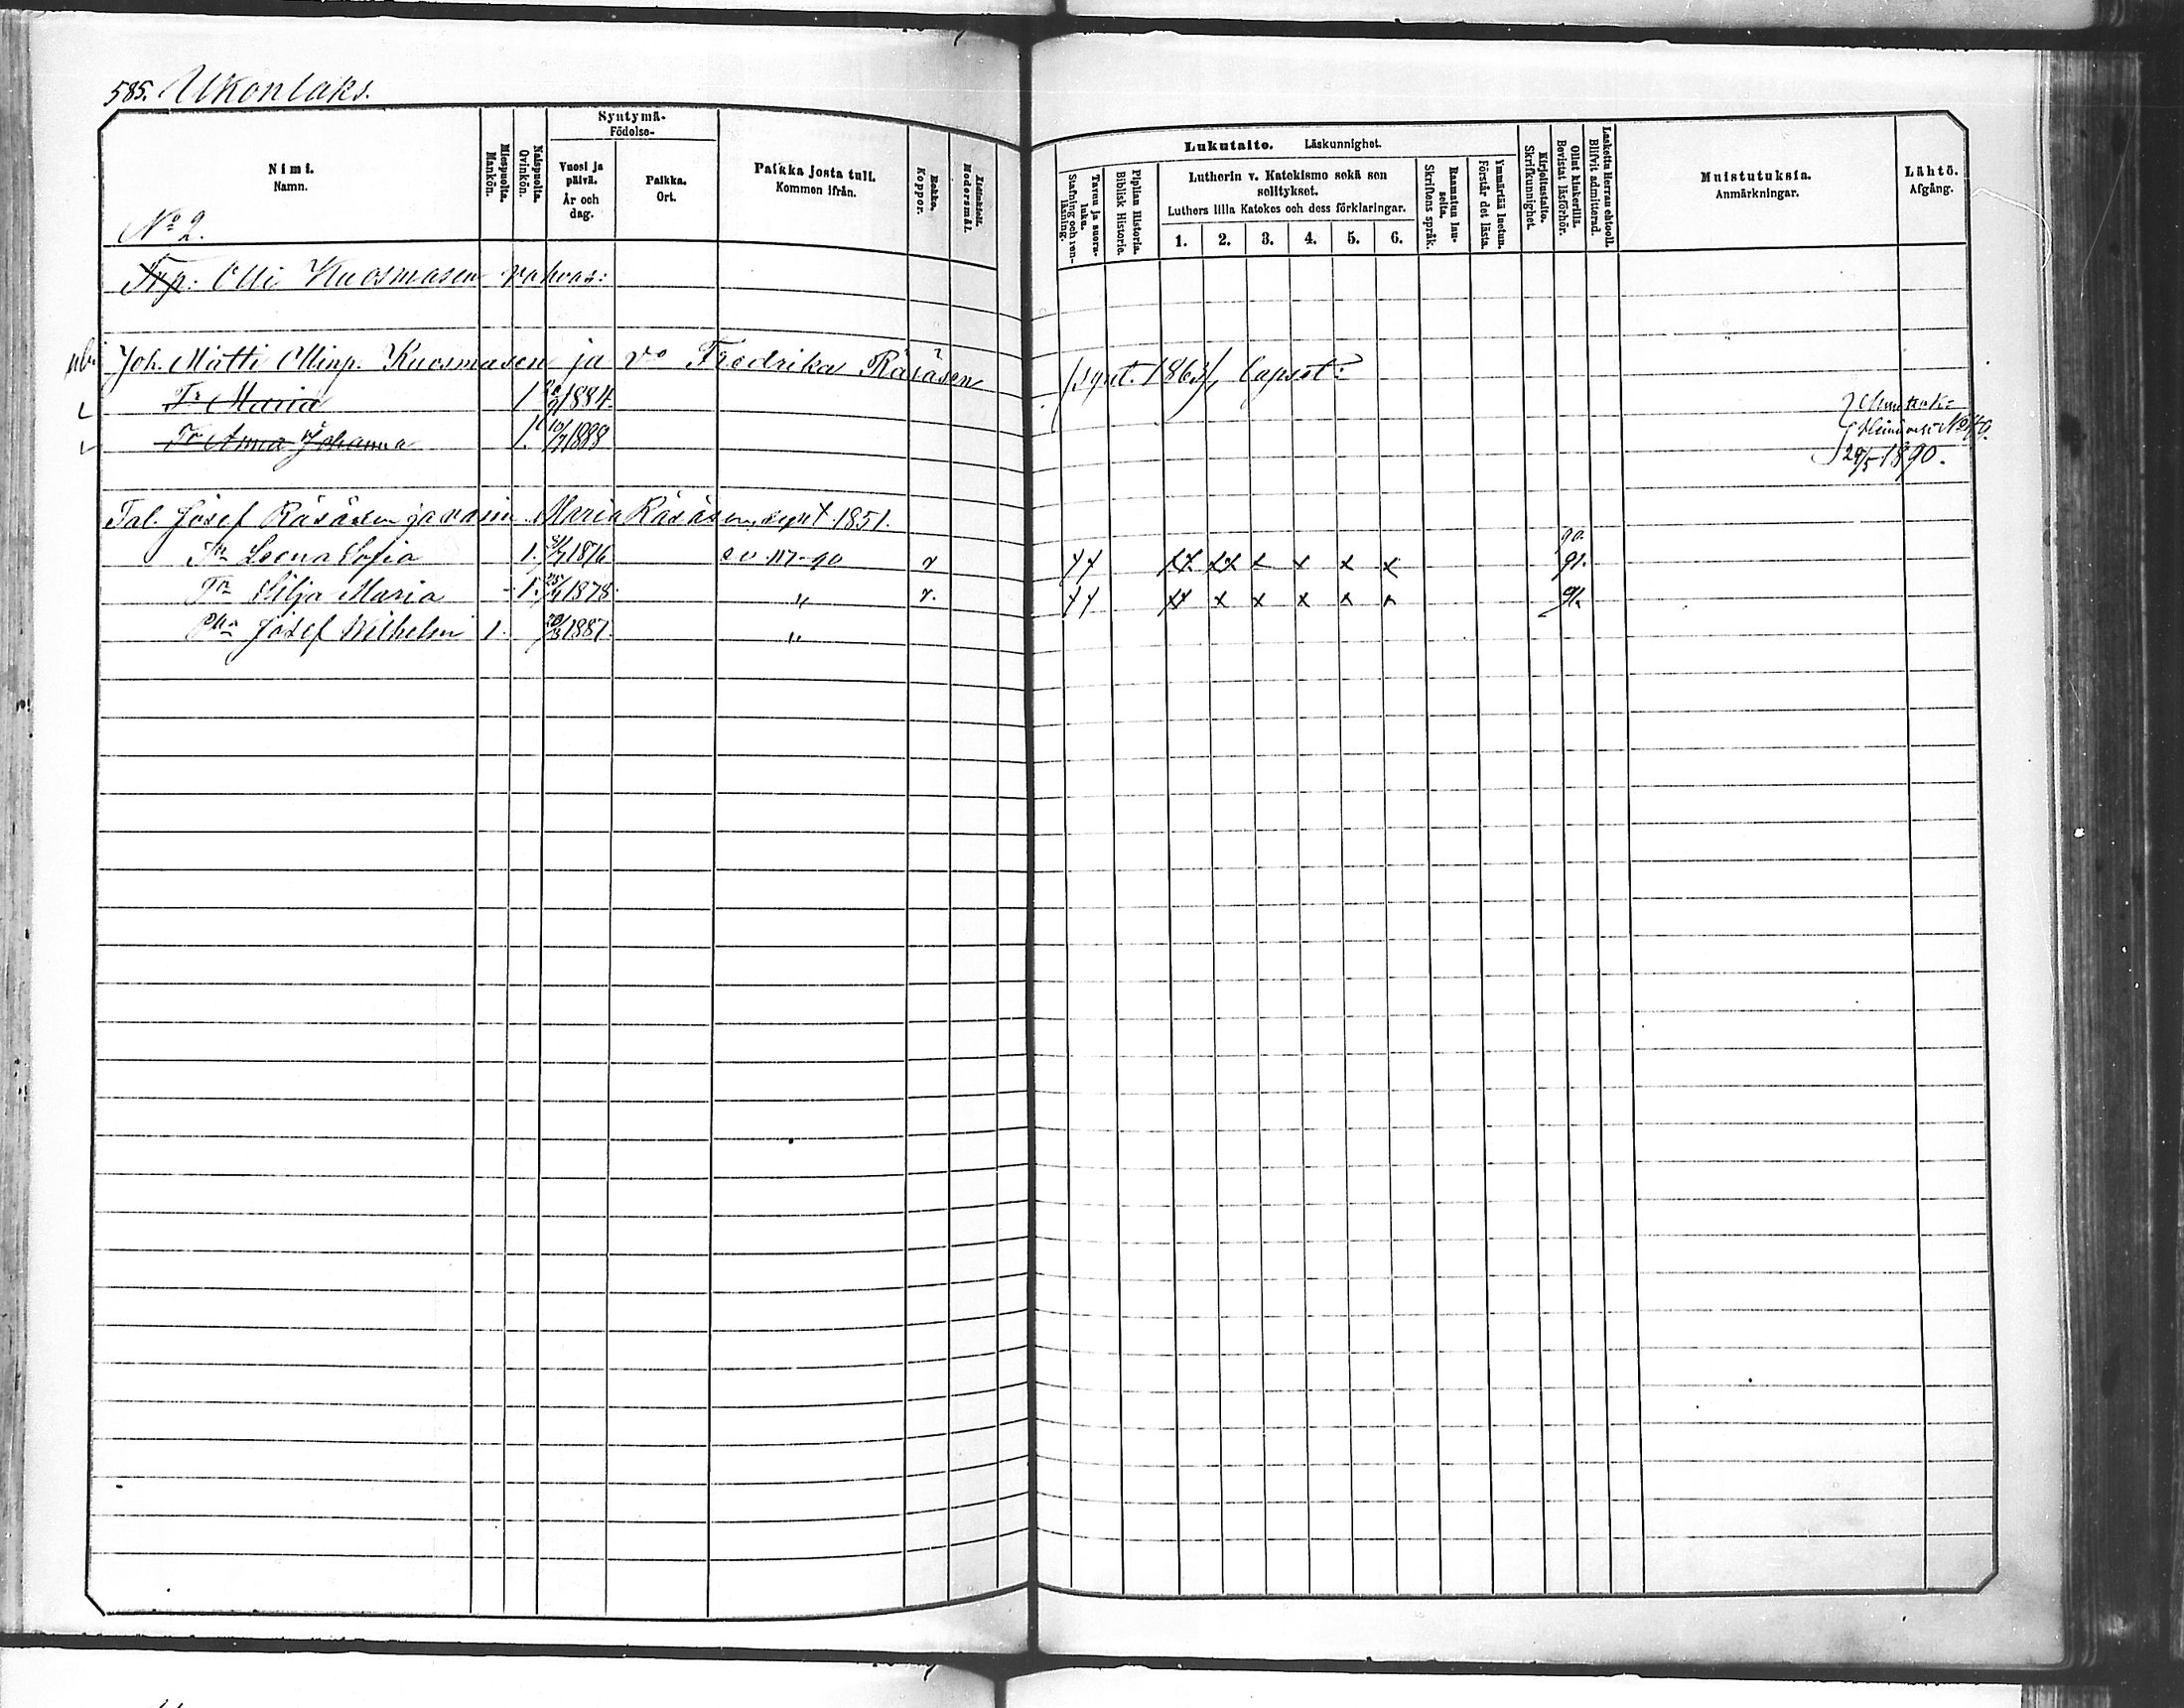 585. Ukonlaks.
Nimi.
Namn.
Miespuolta.
Mankön.
Naispuolta.
Qvinkön.
Syntymä-
Födelse-
Vuosi ja päivä.
År och dag.
Paikka.
Ort.
Paikka josta tuli.
Kommen ifrån.
Rokko.
Koppor.
Äidinkieli.
Modersmål.
Lukutaito. Läskunnighet.
Tavuu ja suora-luku.
Stafning och ren-läsning.
Piplian Historia.
Biblisk Historie.
Lutherin v. Katekismo sekä sen
selitykset.
Luthers lilla Katekes och dess förklaringar.
1. 2. 3. 4. 5. 6.
Raamatun lau-seita.
Skriftens språk.
Ymmärtää luetun.
Förstår det lästa.
Kirjoitustaito.
Skrifkunnighet.
Ollut kinkerillä.
Bevistat läsförhör.
Laskettu Herran ehtool.
Blifvit admitterad.
Muistutuksia.
Anmärkningar.
Lähtö.
Afgång.
No 2.
Trp. Olli Kuosmasen
Joh. Matti Ollinp. Kuosmasen ja vo Fredrika Räsäsen (synt. 1863), lapset:
Tr Maria 1 1884.
Tr Anna Johanna 1. 10/7 1888
No 40.
29/5 1890.
Tal. Josef Räsäsen ja vaim. Maria Räsäsen, synt 1851.
90.
Tr Leena Sofia 1. 1876 117-90 91.
Tr Silja Maria 1. 25/ 1878. " 91.
Josef Wilhelm 1. 20/3 1881. "